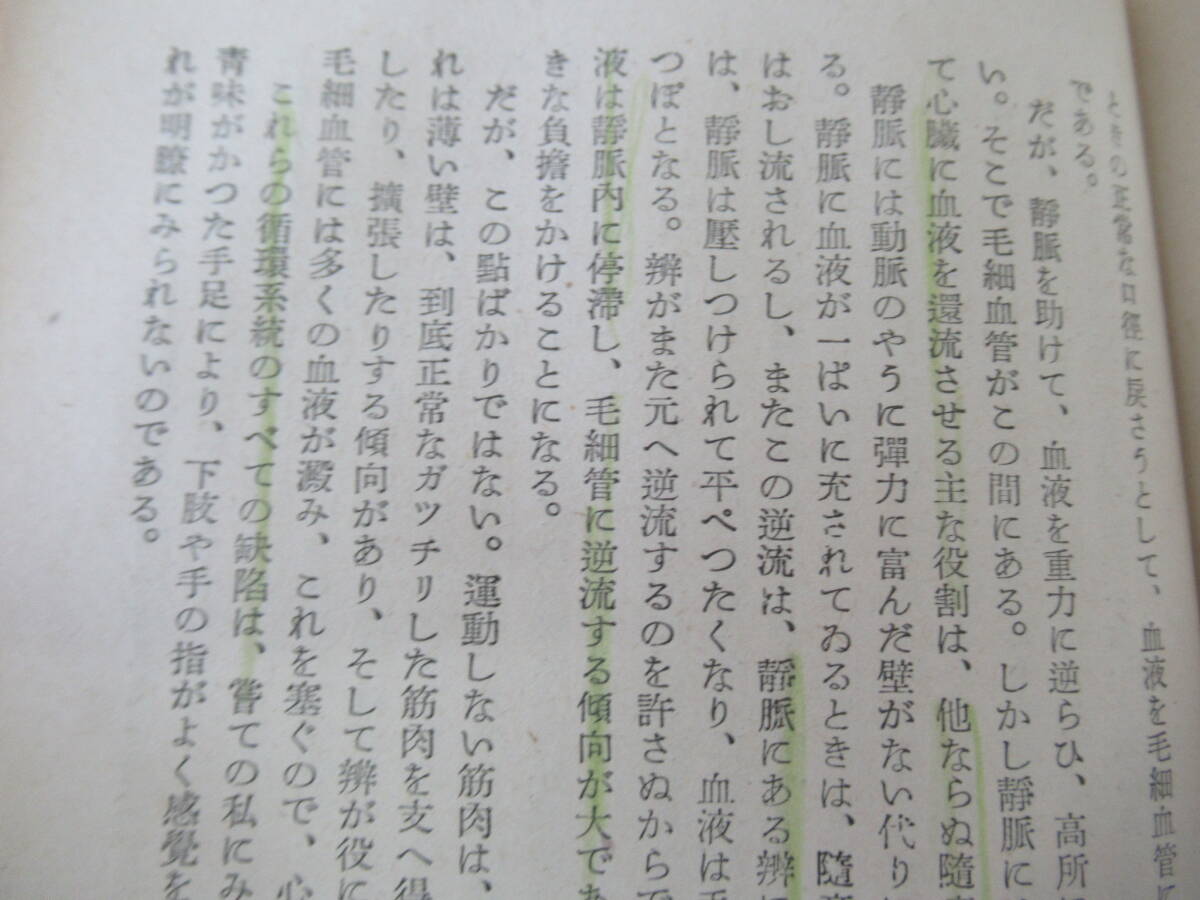 ときの正常な口徑に戻さうとして、血液を毛細血管に
である。
だが、靜脈を助けて、血液を重力に逆らひ、高所に
い。そこで毛細血管がこの間にある。しかし靜脈に
て心臟に血液を還流させる主な役割は、他ならぬ隨意
靜脈には動脈のやうに彈力に富んだ壁がない代りに
る。靜脈に血液が一ぱいに充されてゐるときは、隨意
はおし流されるし、またこの逆流は、靜脈にある辨に
は、靜脈は壓しつけられて平ぺつたくなり、血液は毛
つぽとなる。辨がまた元へ逆流するのを許さぬからで
液は靜脈內に停滯し、毛細管に逆流する傾向が大であ
きな負擔をかけることになる。
だが、この點ばかりではない。運動しない筋肉は、
れは薄い壁は、到底正常なガッチリした筋肉を支へ得
したり、擴張したりする傾向があり、そして辨が役に
毛細血管には多くの血液が澱み、これを塞ぐので、心
これらの循環系統のすべての缺陷は、嘗ての私にみ
靑味がかつた手足により、下肢や手の指がよく感覺を
れが明瞭にみられないのである。